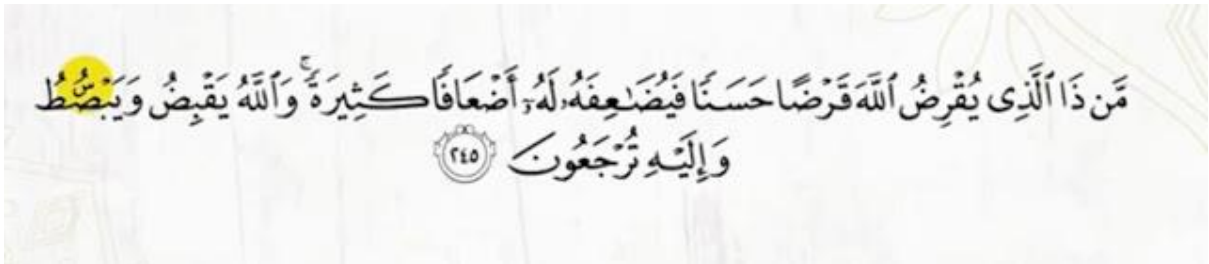 مَّن ذَا ٱلَّذِى يُقْرِضُ ٱللَّهَ قَرْضًا حَسَنًا فَيُضَـٰعِفَهُۥ لَهُۥٓ أَضْعَافًا كَثِيرَةً ۚ وَٱللَّهُ يَقْبِضُ وَيَبْصُۜطُ
وَإِلَيْهِ تُرْجَعُونَ ٢٤٥